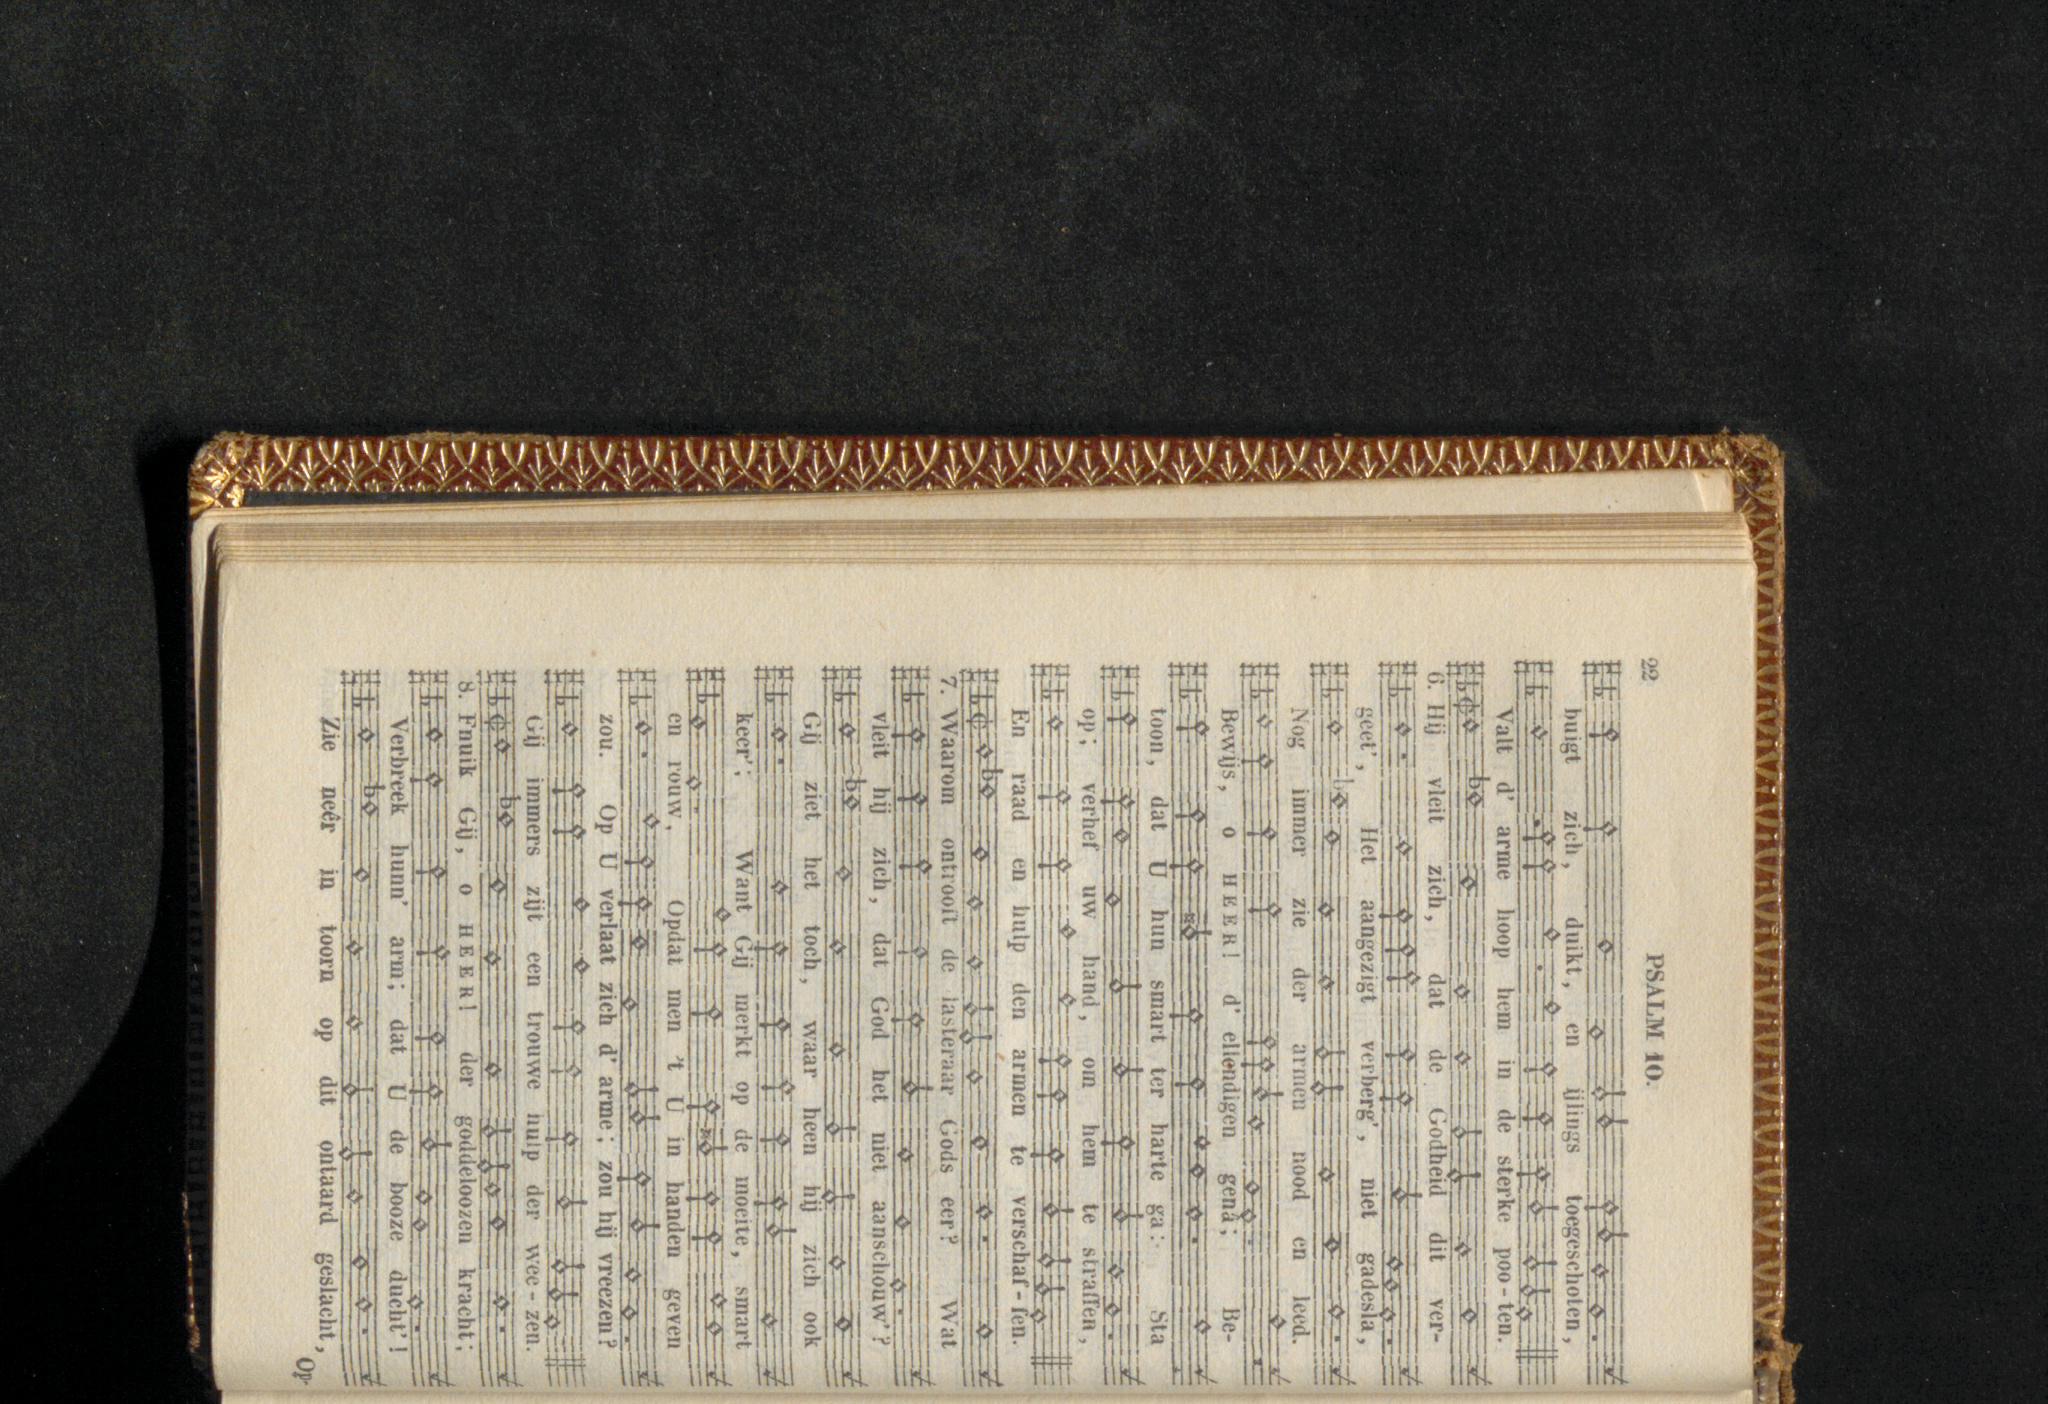 22 PSALM 10.
buigt zich, duikt, en ijlings toegeschoten,
Valt d' arme hoop hem in de sterke poo-ten.
6. Hij vleit zich, dat de Godheid dit ver-
geet', Het aangezigt verberg', niet gadesla,
Nog immer zie der armen nood en leed.
Bewijs, o HEER! d' ellendigen genâ; Be-
toon, dat U hun smart ter harte ga: Sta
op; verhef uw hand, om hem te straffen,
En raad en hulp den armen te verschaf-fen.
7. Waarom ontrooft de lasteraar Gods eer? Wat
vleit hij zich, dat God het niet aanschouw'?
Gij ziet het toch, waar heen hij zich ook
keer'; Want Gij merkt op de moeite, smart
en rouw, Opdat men 't U in handen geven
zou. Op U verlaat zich d' arme; zou hij vreezen?
Gij immers zijt een trouwe hulp der wee-zen.
8. Fnuik Gij, o HEER! der goddeloozen kracht;
Verbreek hunn' arm; dat U de booze ducht'!
Zie neêr in toorn op dit ontaard geslacht,
Op